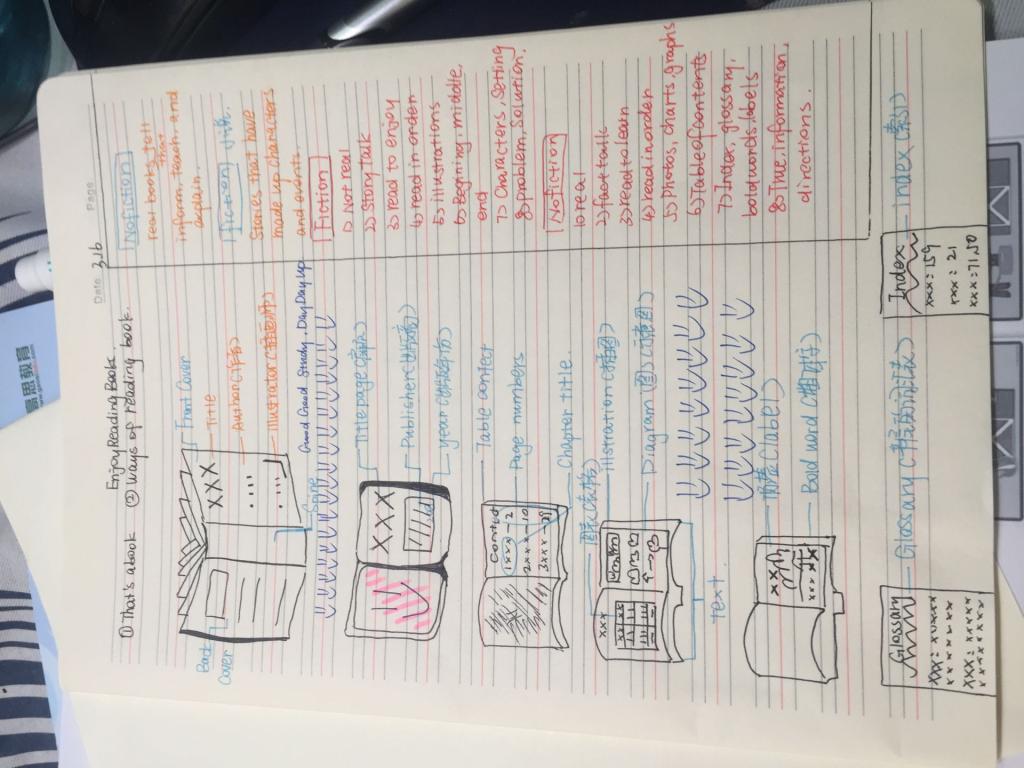 Date 3.16
Page
Enjoy Reading Book
① That's a book ② Ways of reading book.
Font Cover
Title
Author(作者)
Illustrator(插画师)
Spine
Bact
Cover
XXX
Good Good Study Day Day Up
Title page
Publisher(出版商)
year
XXX
Table contect
Page numbers
Chapter title.
1xxx — 2
2xxx — 10
3xxx — 29
Illstration(插图)
Diagram
text
xxx
(label)
Boud word
Glossary
Index(索引)
Glossary
xxx: xxxxx
xxxxxxx
xxx: xxxxx
xxxxxxx
Index
xxx: 159
xxx: 21
xxx: 71.50
Nofiction
real books tell
that
inform, teach, and
explain.
fiction 小说.
Stories that have
made up characters
and events.
Fiction
1) Not real
2) Story talk
3) read to enjoy
4) read in orden
5) illustrations
6) Begining, middle,
end
7) Characters, Setting
8) problem, Solution.
Nofiction
1) real
2) fact talk
3) read to learn
4) read in orden
5) photos, charts, graphs
6) Table of contents
7) Index, glossary,
bold words, labels
8) True information,
directions.
意思教育